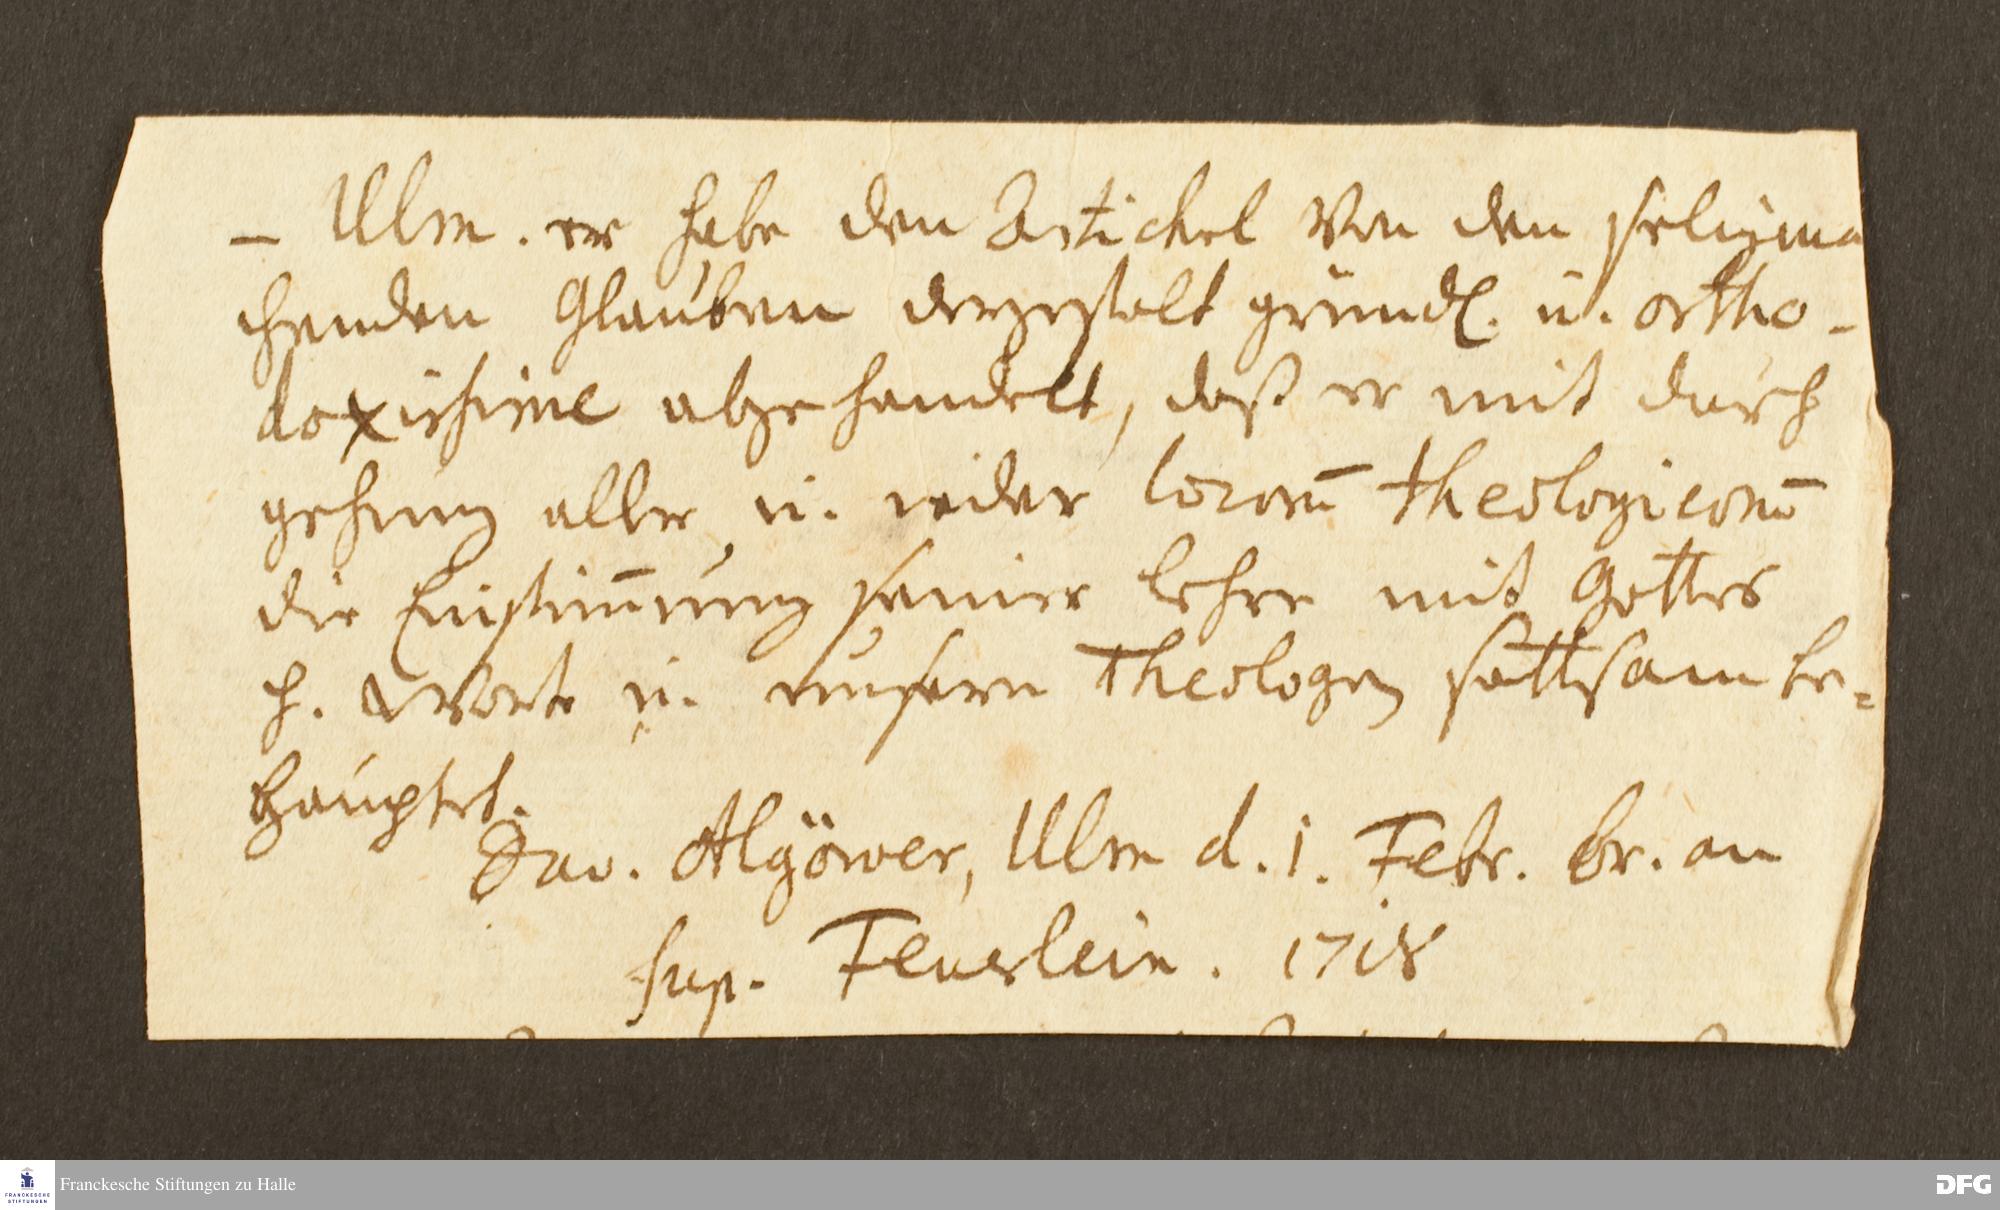 – Ulm. er habe den Artickel von den seligma
chenden Glauben dergestalt gründl. u. ortho-
doxissime abgehandelt, daß er mit durch
gehung aller u. ieder locorū theologicorū
die Einstim̅ung seiner Lehre mit Gottes
H. Worte u. unsern Theologen sattsam be=
hauptet.
Dav. Algöwer, Ulm d. 1. Febr. br. an
sup. Feuerlein. 1718
Franckesche Stiftungen zu Halle
FRANCKESCHE
STIFTUNGEN
DFG